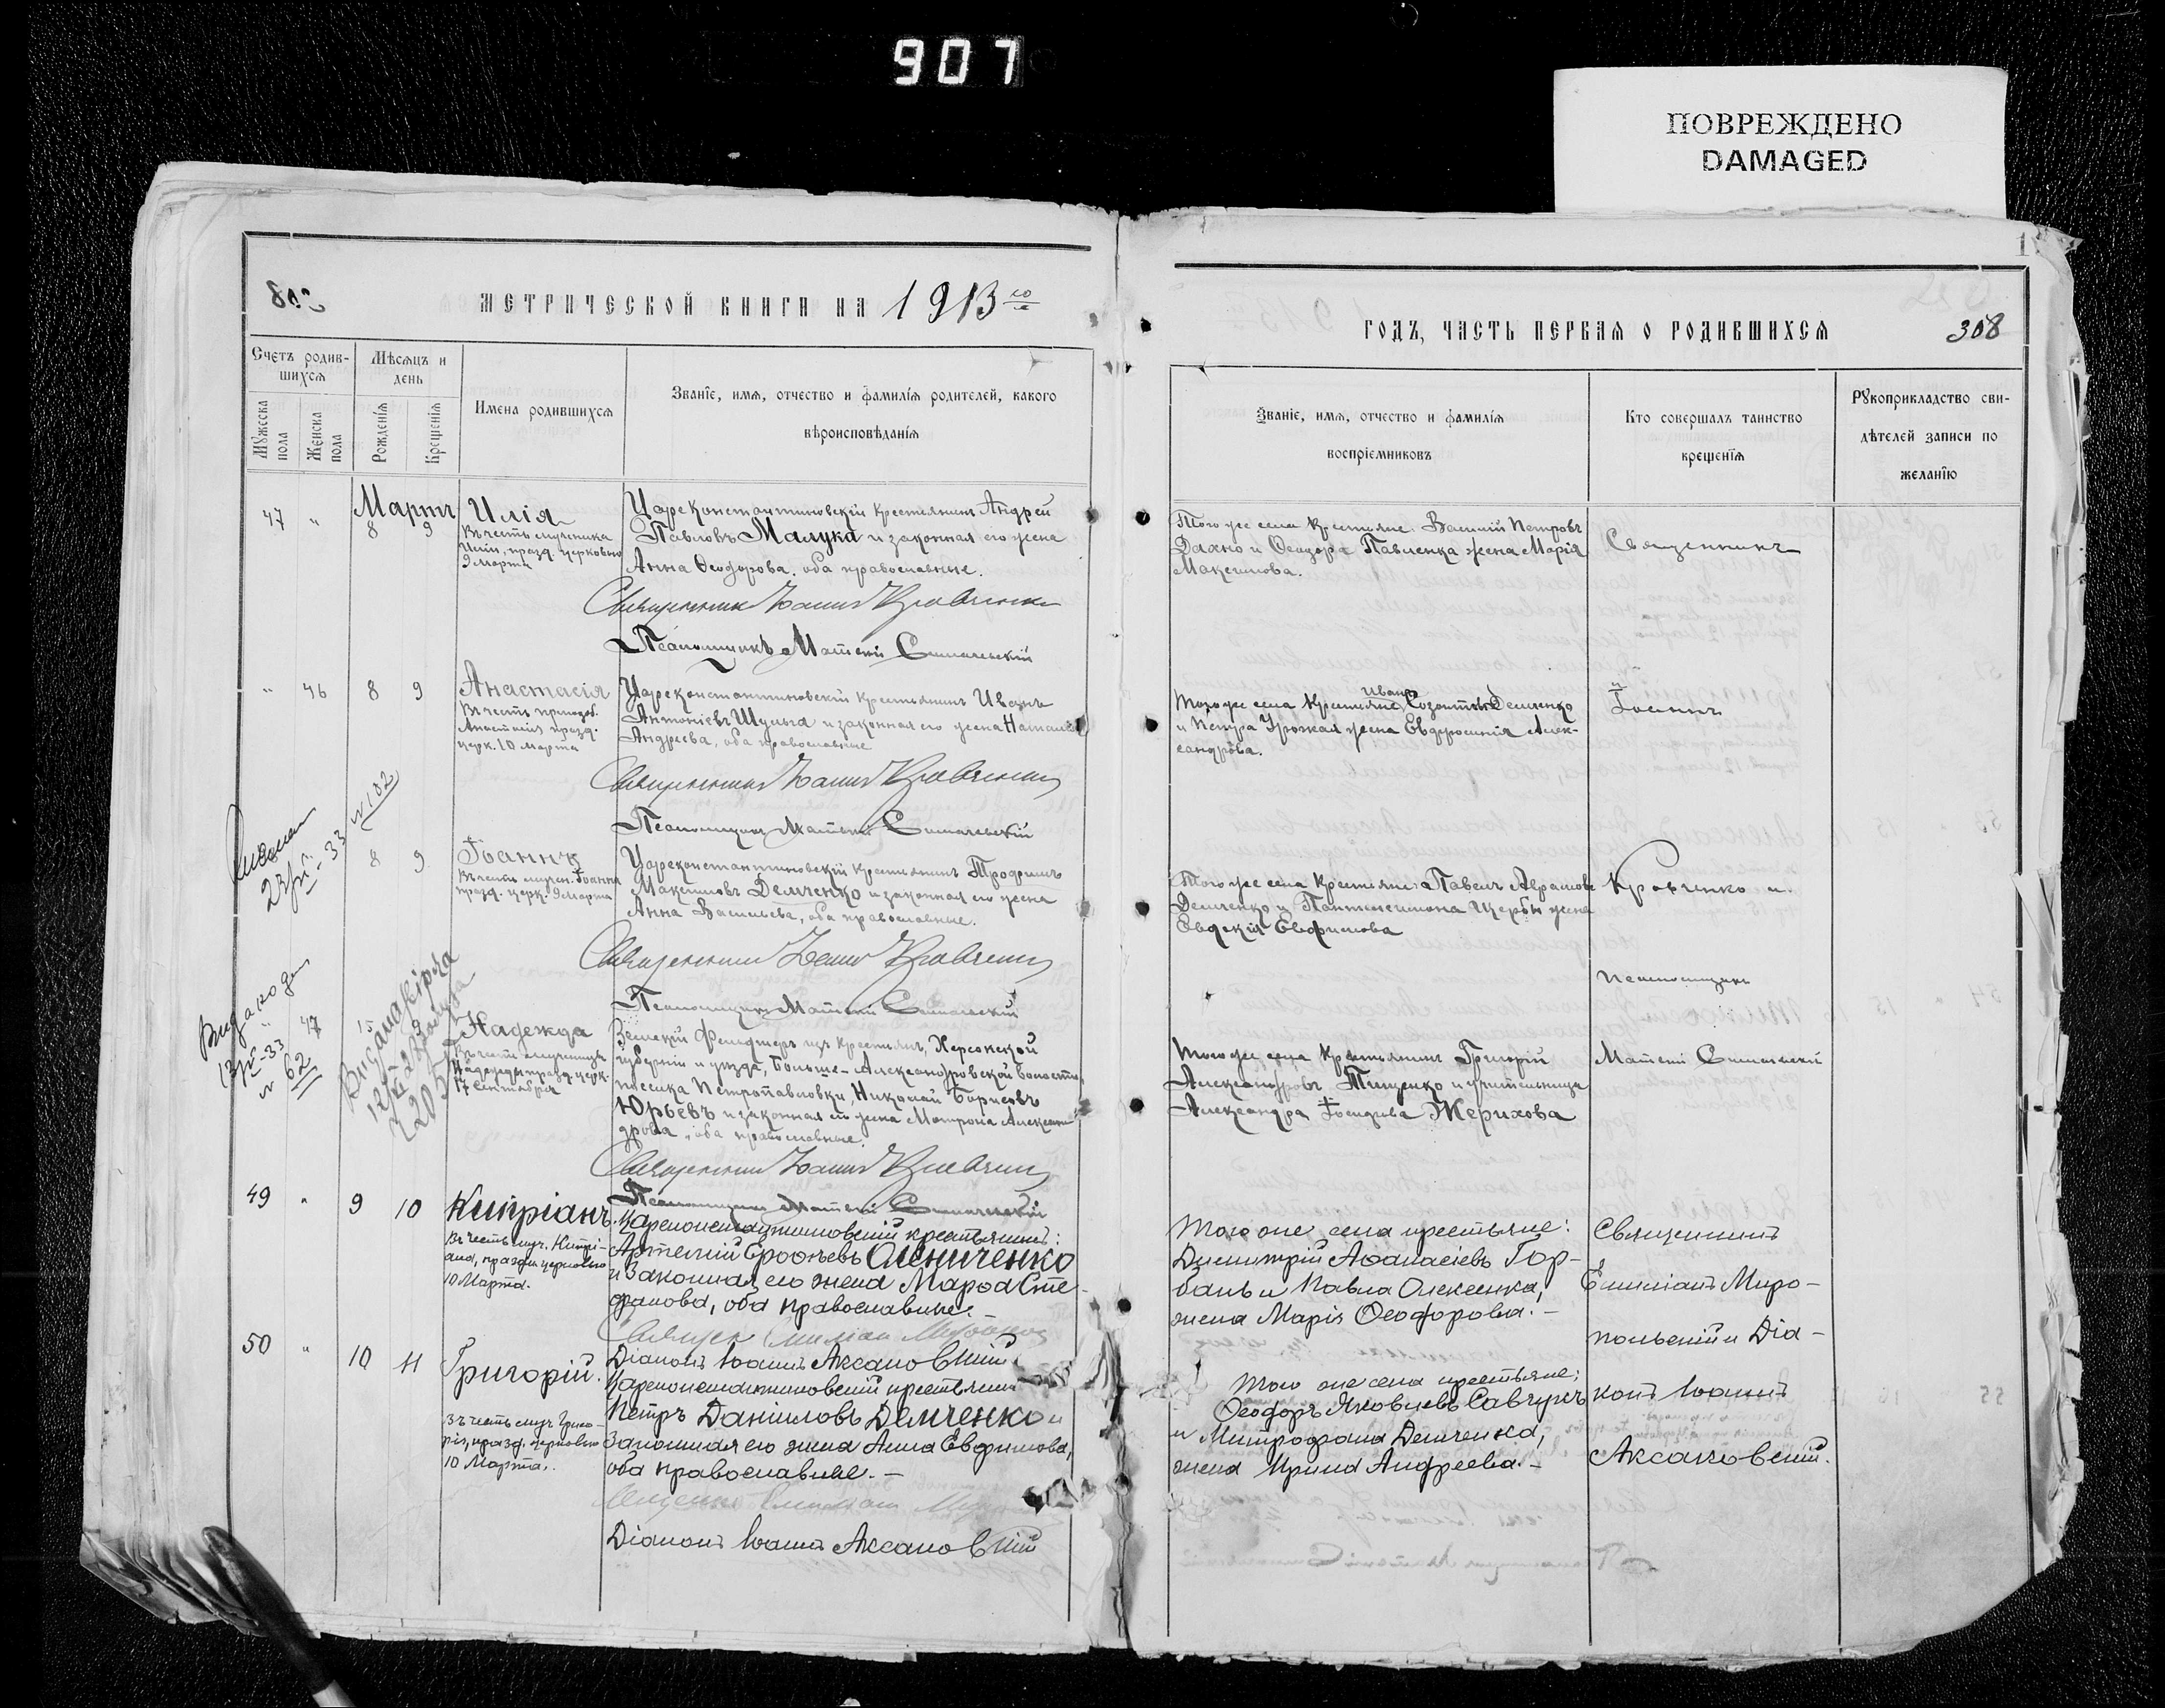 907
ПОВРЕЖДЕНО
DAMAGED
МЕТРИЧЕСКОЙ КНИГИ НА 1913 го
ГОДЪ, ЧАСТЬ ПЕРВАЯ О РОДИВШИХСЯ
308
Счетъ родив-
шихся
Мѣсяцъ и
день
Мужеска
пола
Женска
пола
Рожденія
Крещенія
Имена родившихся
Званіе, имя, отчество и фамилія родителей, какого
вѣроисповѣданія
Званіе, имя, отчество и фамилія
воспріемниковъ
Кто совершалъ таинство
крещенія
Рукоприкладство сви-
дѣтелей записи по
желанію
47 " Мартъ 8 9
Илія
Въ честь мученика
Иліи, празд. церковью
9 марта
Цареконстантиновскій крестьянинъ Андрей
Павловъ Малука и законная его жена
Анна Ѳеодорова, оба православные.
Священникъ Іоаннъ Кравченко
Псаломщикъ Матѳій
Того же села крестьяне: Василій Петровъ
Дахно и Ѳеодора Павленка жена Марія
Максимова.
Священникъ
" 46 8 9
Анастасія
Въ честь преподоб.
Анастасіи празд.
церк. 10 марта
Цареконстантиновскій крестьянинъ Иванъ
Антоніевъ Шульга и законная его жена Наталія
Андреева, оба православные
Священникъ Іоаннъ Кравченко
Псаломщикъ Матѳій
Того же села крестьяне Иванъ Созонтовъ Демченко
и Петра жена Евфросинія Алек-
сандрова.
Іоаннъ
№ 102
8 9
Іоаннъ
Въ честь мучен. Іоанна
празд. церк. 9 марта
Цареконстантиновскій крестьянинъ Трофимъ
Максимовъ Демченко и законная его жена
Анна Васильева, оба православные.
Священникъ Іоаннъ Кравченко
Псаломщикъ Матѳій
Того же села крестьяне: Павелъ Аврамовъ
Демченко и Пантелеимона Щербы жена
Евдокія Евфимова
Кравченко и
псаломщикъ
" 47
№ 62
Надежда
Въ честь мученицы
Надежды празд. церк.
17 сентября
Земскій фельдшеръ изъ крестьянъ, Херсонской
губерніи и уѣзда, Больше-Александровской волости,
поселка Петропавловки, Николай Борисовъ
Юрьевъ и законная его жена Матрона Алексан-
дрова, оба православные.
Священникъ Іоаннъ Кравченко
Псаломщикъ Матѳій
Того же села крестьянинъ Григорій
Александровъ Тищенко и учительница
Александра Іосифова Жерихова
Матѳій
49 " 9 10
Кипріанъ
Въ честь муч. Кипрі-
ана, празд. церковью
10 Марта.
Цареконстантиновскій крестьянинъ:
Артемій Ероѳеевъ Олениченко
и законная его жена Марѳа Сте-
фанова, оба православные. —
Діаконъ Іоаннъ Аксановскій
Того же села крестьяне:
Димитрій Аѳанасіевъ Гор-
бань и Павла Олексенка,
жена Марія Ѳеодорова. —
Священникъ
Емиліанъ Миро-
польскій и Діа-
50 " 10 11
Григорій.
Въ честь муч. Григо-
рія, празд. церковью
10 Марта.
Цареконстантиновскій крестьянинъ
Петръ Даніиловъ Демченко и
законная его жена Анна Евфимова,
оба православные. —
Діаконъ Іоаннъ Аксановскій
Того же села крестьяне:
Ѳеодоръ Яковлевъ Савчукъ
и Митрофана Демченка,
жена Ирина Андреева. —
конъ Іоаннъ
Аксановскій.